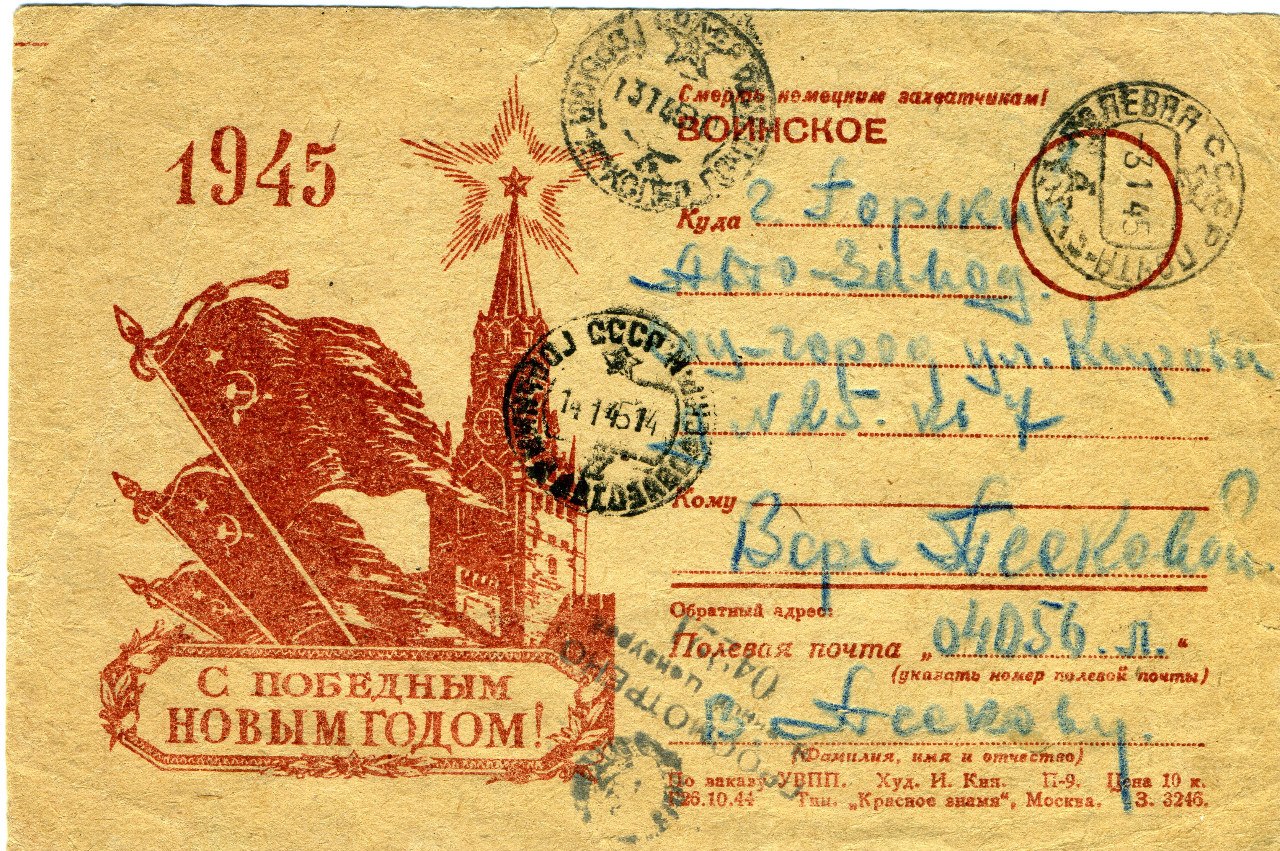 1945
С ПОБЕДНЫМ
НОВЫМ ГОДОМ!
Смерть немецким захватчикам!
ВОИНСКОЕ
Куда г Горький
Авто-Завод.
город ул.
№ 25. кв 7
Кому
Вере Песковой
Обратный адрес:
Полевая почта „04056. л.“
(указать номер полевой почты)
В. Пескову.
(Фамилия, имя и отчество)
По заказу УВПП. Худ. И. Кин. П-9. Цена 10 к.
26.10.44 Тип. „Красное знамя“, Москва. З. 3246.
ПОЛЕВАЯ ПОЧТА СССР
-3 1 45
13 1 45
СССР
14 1 45 14
ПРОСМОТРЕНО